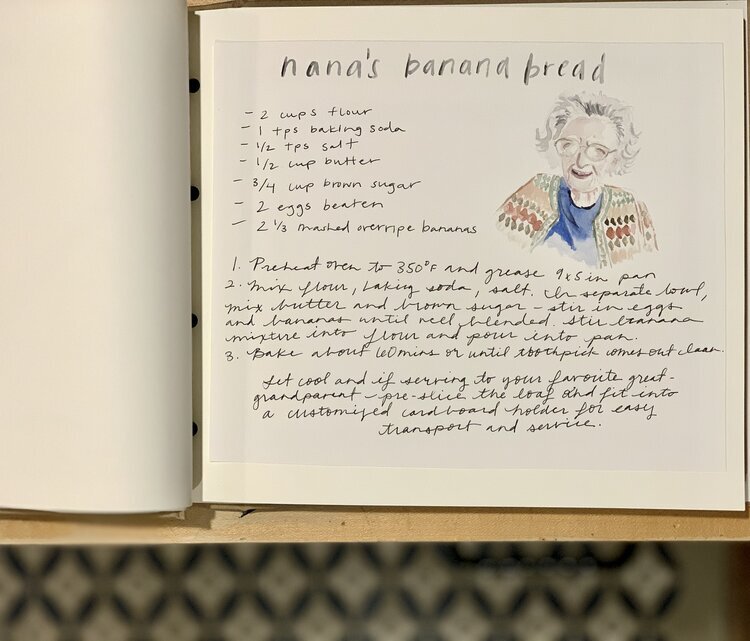 nana's banana bread
- 2 cups flour
- 1 tps baking soda
- 1/2 tps salt
- 1/2 cup butter
- 3/4 cup brown sugar
- 2 eggs beaten
- 2 1/3 mashed overripe bananas
1. Preheat oven to 350°F and grease 9x5 in pan
2. Mix flour, baking soda, salt. In separate bowl,
mix butter and brown sugar - stir in eggs
and bananas until well blended. Stir banana
mixture into flour and pour into pan.
3. Bake about 60 mins or until toothpick comes out clean.
Let cool and if serving to your favorite great-
grandparent - pre-slice the loaf and fit into
a customized cardboard holder for easy
transport and service.